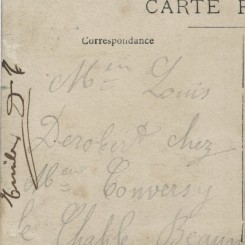 CARTE P
Correspondance
Mein Louis
Derobert chez
Mme Conversy
le Chable Beaum
Emile D